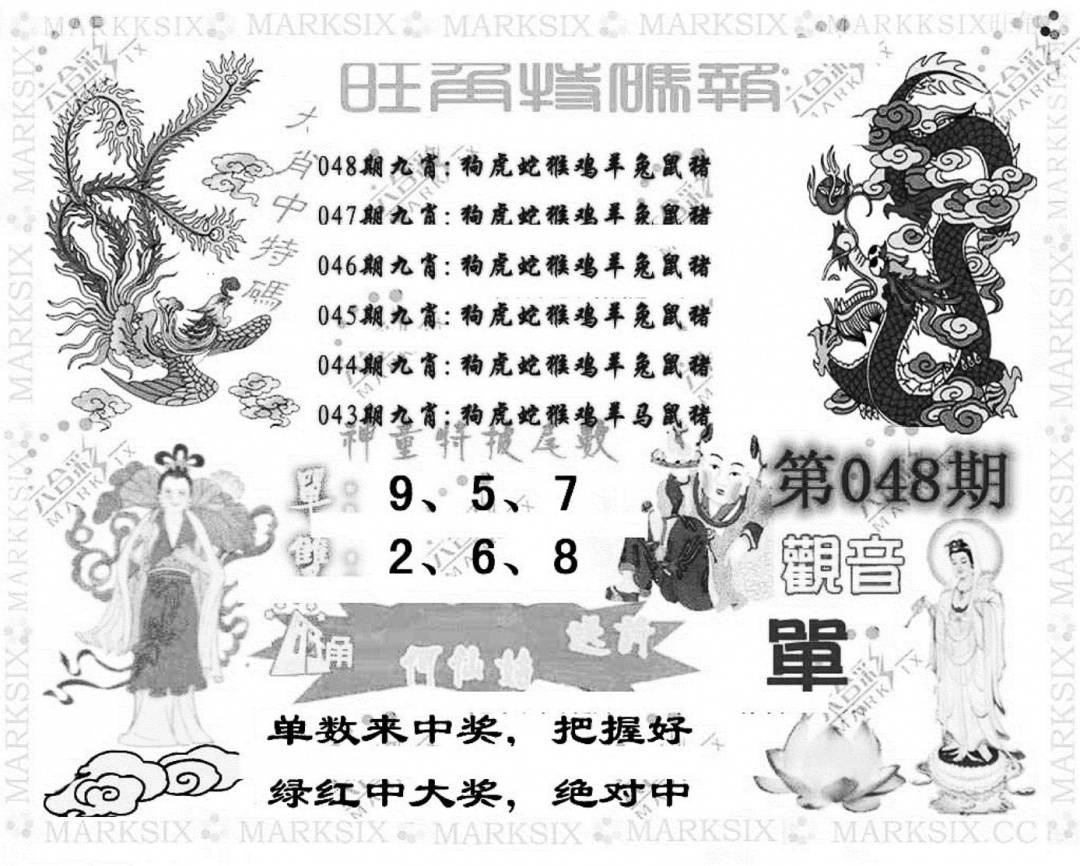 MARKSIX MARKSIX MARKSIX MARKSIX MARKKSIX
旺角特碼報
六肖中特碼
048期九肖:狗虎蛇猴鸡羊兔鼠猪
047期九肖:狗虎蛇猴鸡羊兔鼠猪
046期九肖:狗虎蛇猴鸡羊兔鼠猪
045期九肖:狗虎蛇猴鸡羊兔鼠猪
044期九肖:狗虎蛇猴鸡羊兔鼠猪
043期九肖:狗虎蛇猴鸡羊马鼠猪
神童特披尾數
單: 9、5、7
雙: 2、6、8
第048期
觀音
單
何仙姑
单数来中奖，把握好
绿红中大奖，绝对中
MARKSIX MARKSIX MARKSIX MARKSIX MARKSIX.CC